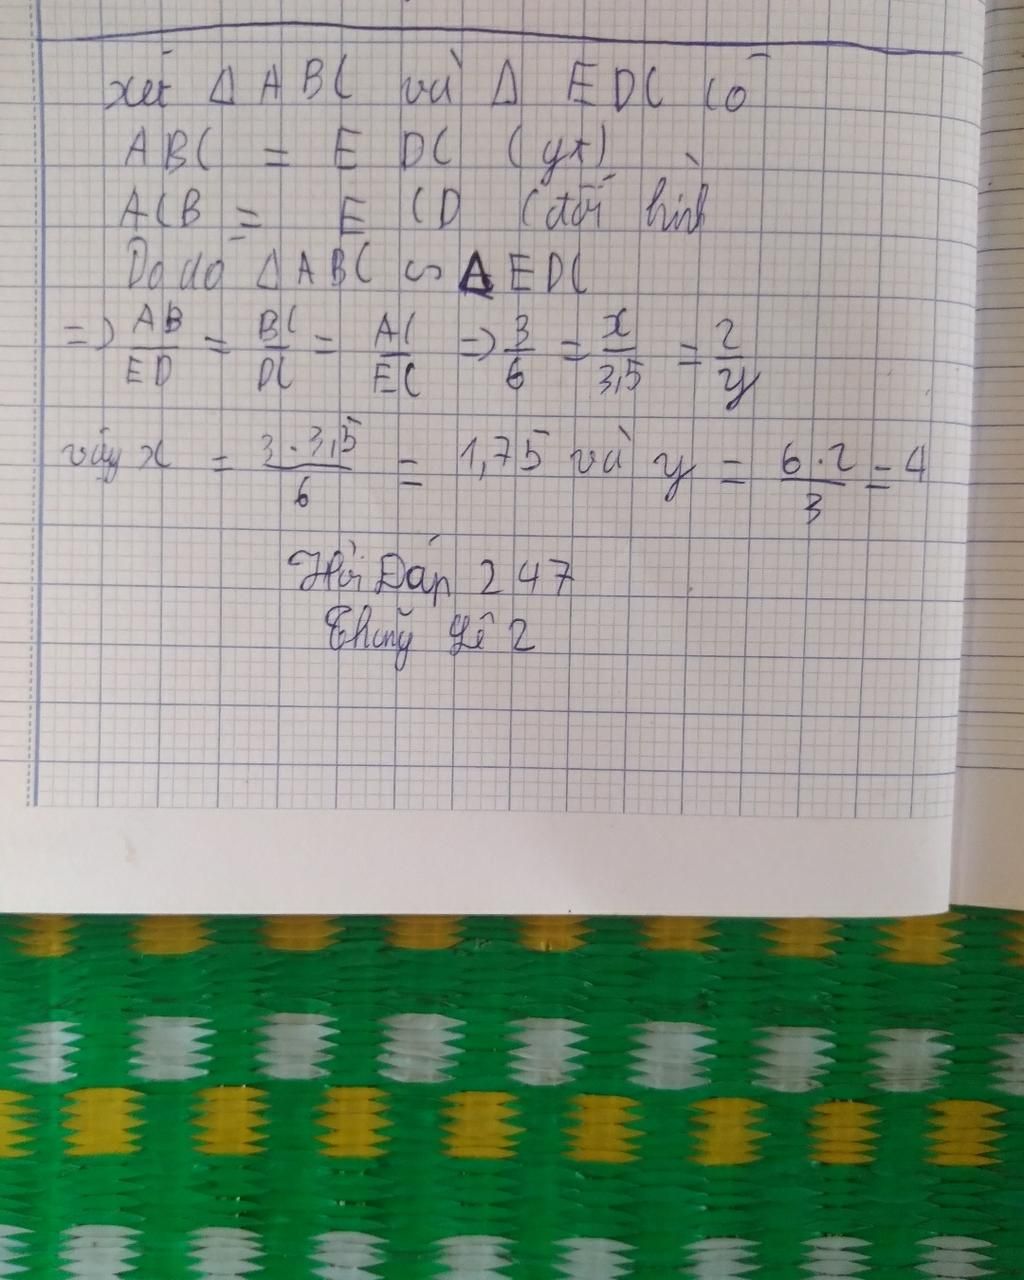 xét Δ ABC và Δ EDC có
ABC = EDC (gt)
ACB = ECD (đối hình
Do đó ΔABC ∽ ΔEDC
=> AB/ED = BC/DC = AC/EC => 3/6 = x/3,5 = 2/y
vậy x = 3.3,5/6 = 1,75 và y = 6.2/3 = 4
Hỏi Đáp 247
Lê 2